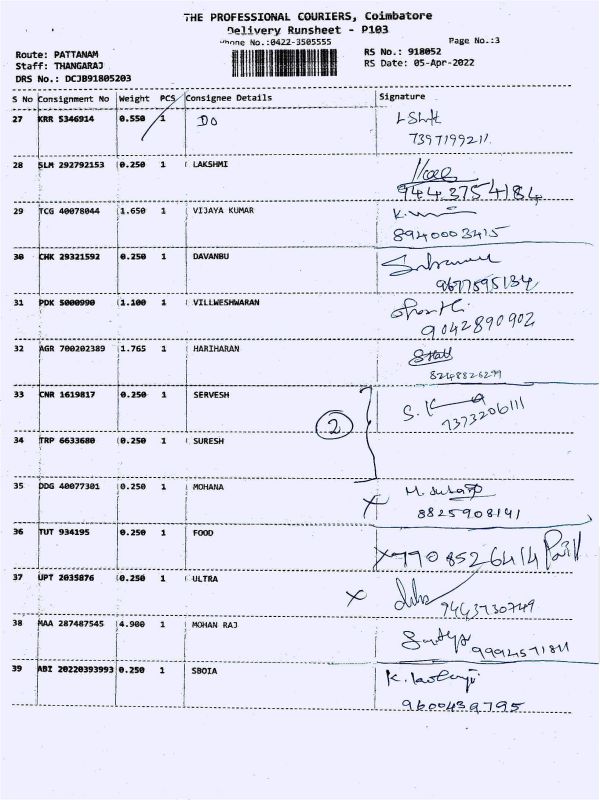 THE PROFESSIONAL COURIERS, Coimbatore
Delivery Runsheet - P103
Phone No.:0422-3505555
Page No.:3
Route: PATTANAM
RS No.: 918052
Staff: THANGARAJ
RS Date: 05-Apr-2022
DRS No.: DCJB91805203
S No Consignment No Weight PCS Consignee Details Signature
27 KRR 5346914 0.550 1 DO
7397199211
28 SLM 292792153 0.250 1 LAKSHMI
9443754184
29 TCG 40078044 1.650 1 VIJAYA KUMAR
8940003415
30 CHK 29321592 0.250 1 DAVANBU
9677595134
31 PDK 5000990 1.100 1 VILLWESHWARAN
9042890902
32 AGR 700202389 1.765 1 HARIHARAN
33 CNR 1619817 0.250 1 SERVESH
7373206111
2
34 TRP 6633680 0.250 1 SURESH
35 DDG 40077301 0.250 1 MOHANA
X
8825908141
36 TUT 934195 0.250 1 FOOD
X 7908526414
37 UPT 2035876 0.250 1 ULTRA
X
9443730749
38 MAA 287487545 4.900 1 MOHAN RAJ
39 ABI 20220393993 0.250 1 SBOIA
9600439795